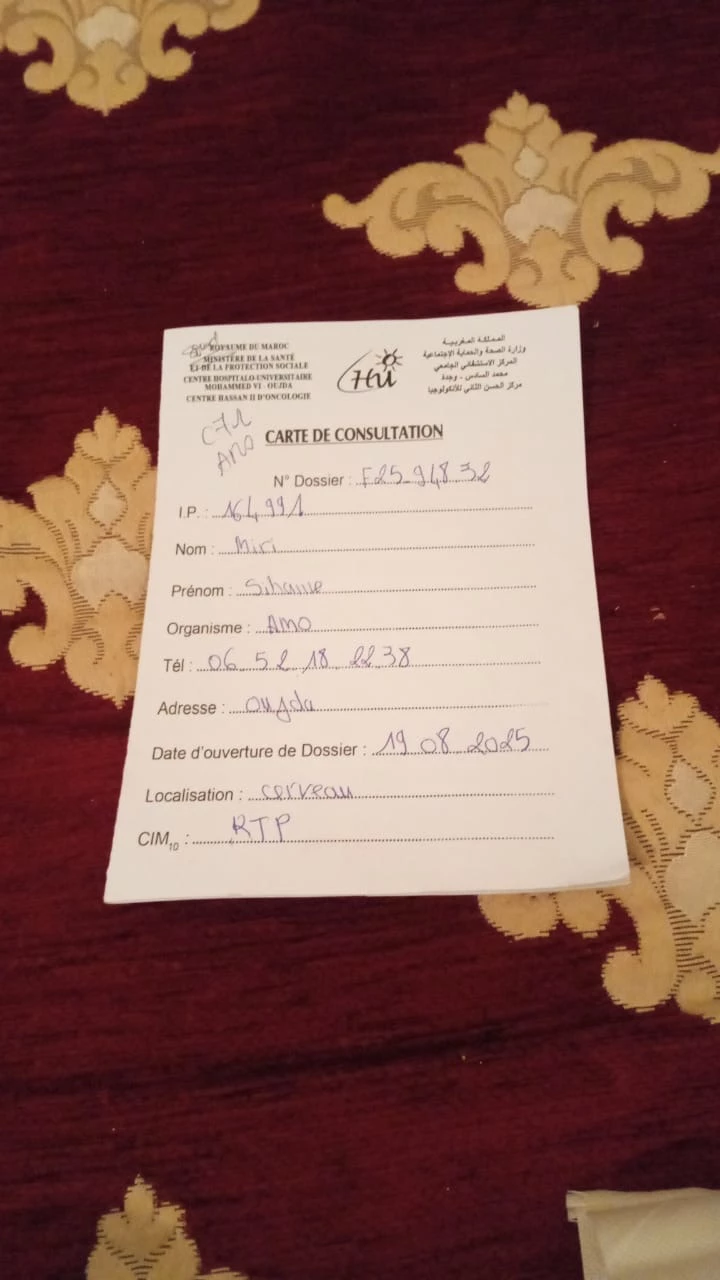 ROYAUME DU MAROC
MINISTÈRE DE LA SANTÉ
ET DE LA PROTECTION SOCIALE
CENTRE HOSPITALO-UNIVERSITAIRE
MOHAMMED VI - OUJDA
CENTRE HASSAN II D'ONCOLOGIE
CHU
المملكة المغربية
وزارة الصحة والحماية الاجتماعية
المركز الاستشفائي الجامعي
محمد السادس - وجدة
مركز الحسن الثاني للأنكولوجيا
AMO
CARTE DE CONSULTATION
N° Dossier : F25 94832
I.P. : 164991
Nom : Miri
Prénom : Sihame
Organisme : AMO
Tél : 06 52 18 22 38
Adresse : oujda
Date d'ouverture de Dossier : 19 08 2025
Localisation : cerveau
CIM10 : RTP